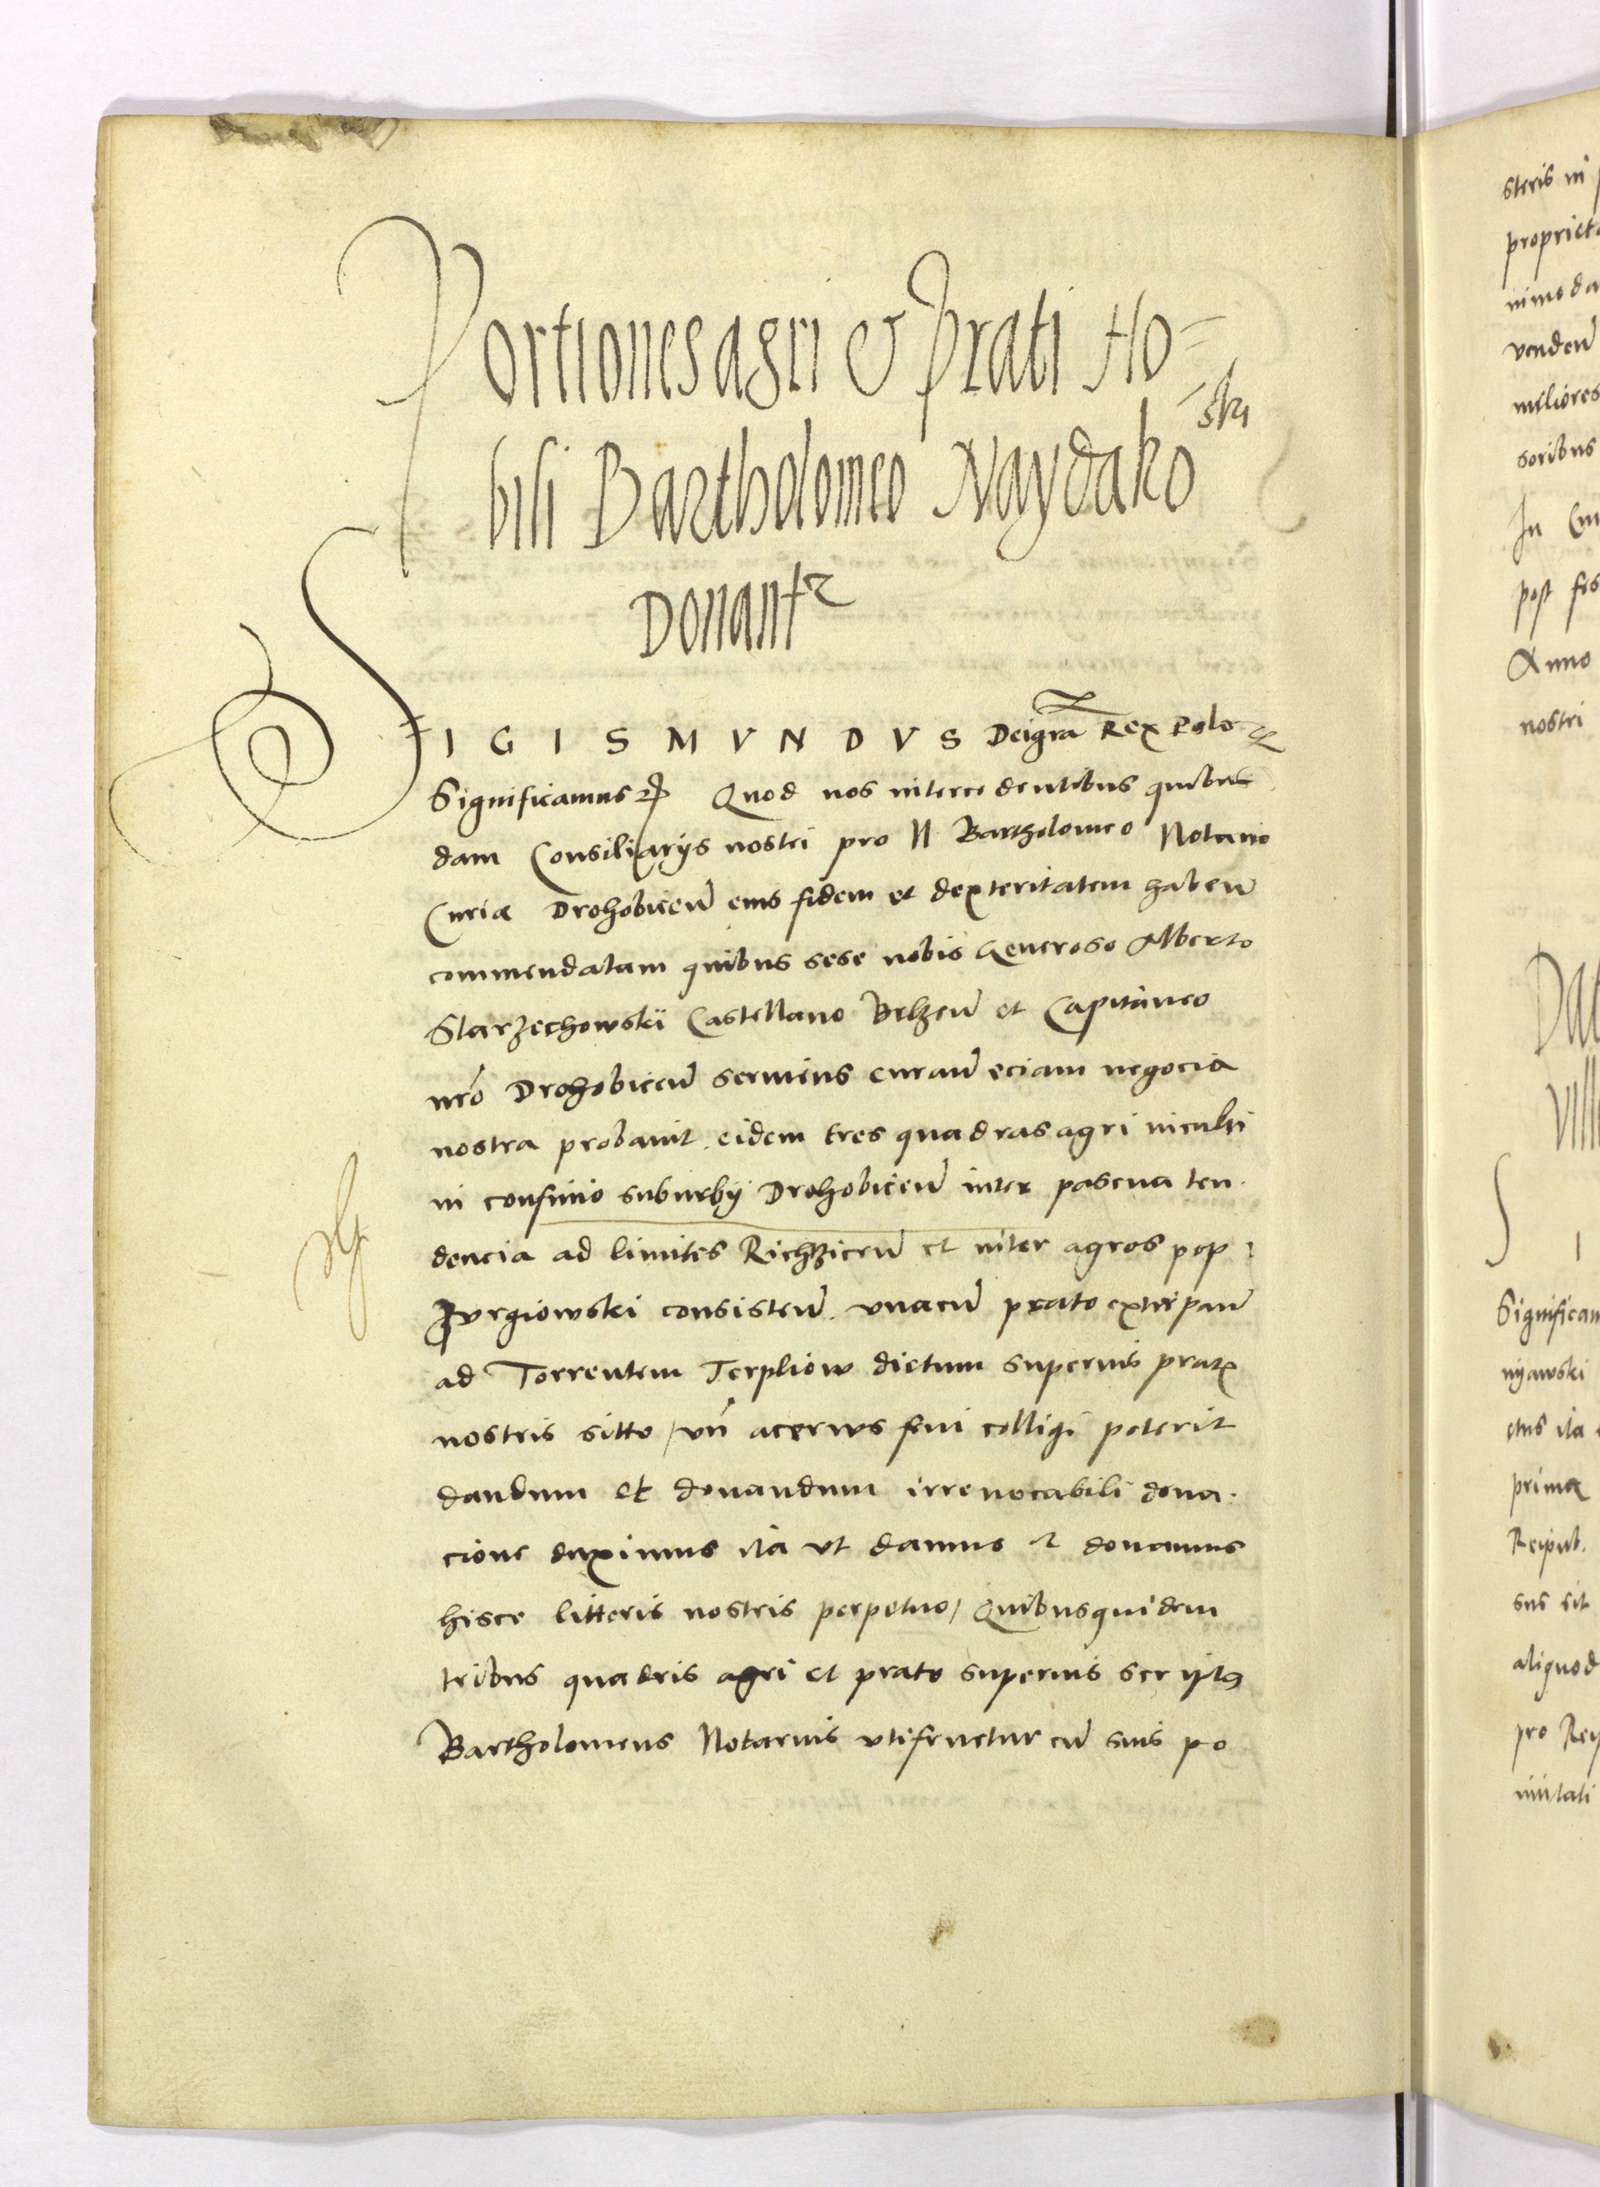 Portiones agri & prati No=
bili Bartholomeo Naydako
-ski
Donantr
SIGISMVNDVS Dei gra Rex Polo
Significamus Quod nos intercedentibus quibus
dam Consiliarijs nostri pro N Bartholomeo Notario
Curiæ Drohobicen eius fidem et dexteritatem haben
commendatam quibus sese nobis Generoso Alberto
Starzechowski Castellano Belzen et Capitaneo
nro Drohobicen seruiens curan eciam negocia
nostra probauit eidem tres quadras agri inculti
in confinio suburbij Drohobicen inter pascua ten
dencia ad limites Richticen et inter agros pop
Jurgiowski consisten. vnacum prato extirpan
ad Torrentem Terpliow dictum superius prat
nostris sitto, vn aceruus feni colligi poterit
dandum et donandum irreuocabili dona
cione duximus ita vt damus et donamus
hisce litteris nostris perpetuo, Quibusquidem
tribus quadris agri et prato superius script
Bartholomeus Notarius vtifruetur cum suis po
steris in
propriet
nimoda
venden
meliores
soribus
In Cui
post fes
Anno
nostri
Dat
Vill
S I
Significam
nyawski
ctus ita
primæ
Reipub.
sus sit
aliquod
pro Reip
nuitati